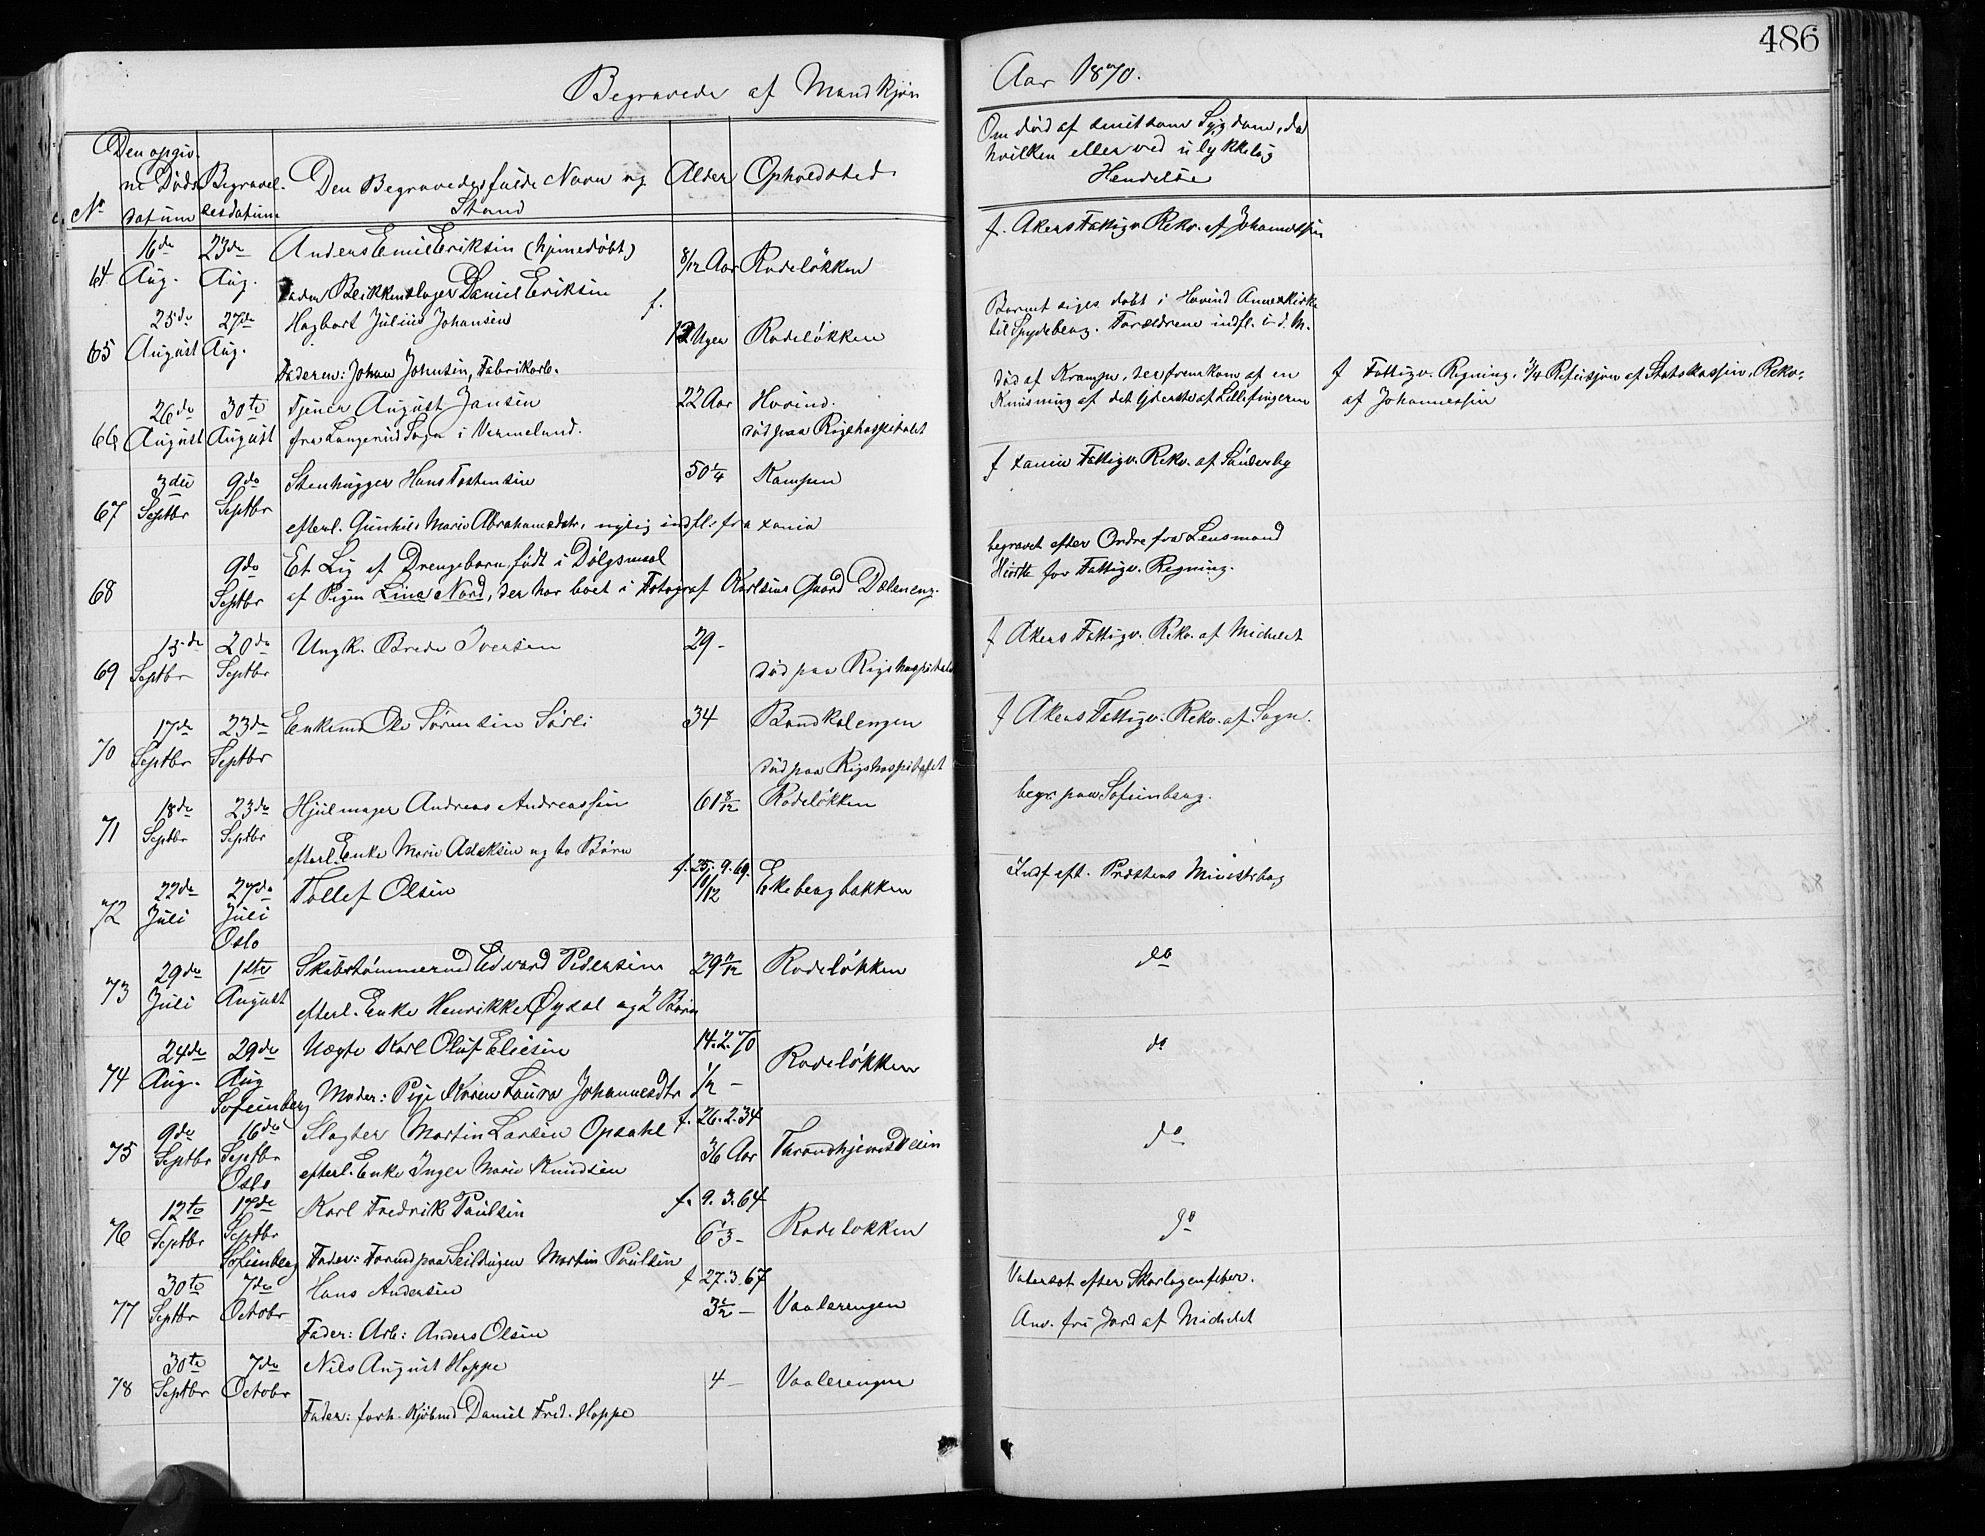 486
Begravede af Mandkjøn
Aar 1870.
No
Den opgivne Dødsdatum
Begravelsesdatum
Den Begravedes fulde Navn og Stand
Alder
Opholdsted
Om død af smitsom Sygdom, da hvilken eller ved ulykkelig Hendelse
64
16de Aug.
23de Aug.
Anders Emil Eriksen (hjemedøbt)
Fader Blikkenslager Daniel Eriksen
8/12 Aar
Rodeløkken
f. Akers Fattigv. Rekv. af Johannessen
65
25de August
27de Aug.
Hagbart Julius Johansen
Faderen: Johan Johnsen, Fabrikarb.
f.
12 Uger
Rodeløkken
Barnet siges døbt i Hovind Annexkirke
til Spydeberg. Forældrene indfl. i d. M.
66
26de August
30te August
Tjener August Jansen
fra Langerud Sogn i Vermeland.
22 Aar
Hovind.
død paa Rigshospitalet
død af Krampe, der fremkom af en
Knusning af det Yderste af Lillefingeren
f Fattigv. Regning. 3/4 Refusion af Statskassen. Rekv.
af Johannessen
67
3die Septbr
9de Septbr
Stenhugger Hans Tostensen
efterl. Gunhild Marie Abrahamsdtr, nylig indfl. fra Xania
50 1/4
Kampen
f Xania Fattigv. Rekv. af Sønderby
68
9de Septbr
Et Lig af Drengebarn, født i Dølgsmaal
af Pigen Lina Nord, der har boet i Fotograf Karlsens Gaard Dæleneng.
begravet efter Ordre fra Lensmand
Hiorth for Fattigv. Regning.
69
15de Septbr
20de Septbr
Ungk. Brede Iversen
29 -
død paa Rigshospitalet
f Akers Fattigv. Rekv. af Michelet
70
17de Septbr
23de Septbr
Enkemd Ole Sørensen Sørli
34
Bandkalengen
død paa Rigshospitalet
f Akers Fattigv. Rekv. af Sogn.
71
18de Septbr
23de Septbr
Hjulmager Andreas Andreassen
efterl. Enke Marie Adeksen og to Børn
61 8/12
Rodeløkken
begr. paa Sofienberg.
72
22de Juli
27de Juli
Oslo
Tollef Olsen
f. 25. 9. 69.
10/12
Ekebergbakken
Indf. eft. Præstens Ministrbog
73
29de Juli
1ste August
Skibstømmermd Edvard Pedersen
efterl. Enke Henrikke Øydal og 2 Børn
29 11/12
Rodeløkken
do
74
24de Aug.
29de Aug
Sofienberg
Uægte Karl Oluf Eliesen
Moder: Pige Karen Laura Johannesdtr
14. 2. 70
1/2 -
Rodeløkken
do
75
9de Septbr
16de Septbr
Oslo
Slagter Martin Larsen Opsahl
efterl. Enke Inger Marie Knudsen
f. 26. 2. 34
36 Aar
Throndhjemsveien
do
76
12te Septbr
17de Septbr
Sofienberg
Karl Fredrik Paulsen
Fader: Formd paa Seildugen Martin Paulsen
f. 9. 3. 64
6 1/3 -
Rodeløkken
do
77
30te Septbr
7de Octobr
Hans Andersen
Fader: Arb: Anders Olsen
f 27. 3. 67
3 1/2 -
Vaalerengen
Vatersot efter Skarlagenfeber.
Anv. fri Jord af Michelet
78
30te Septbr
7de Octobr
Nils August Hoppe
Fader: forh. Kjøbmd Daniel Fred. Hoppe
4 -
Vaalerengen